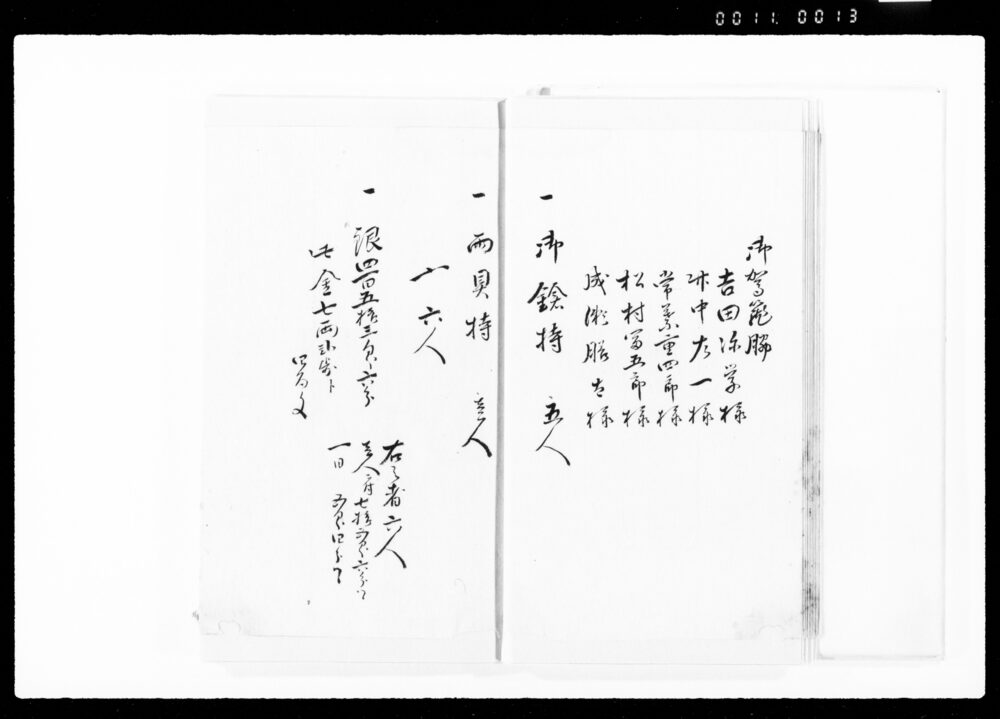 0011. 0013
御駕籠脇
吉田弥学様
竹中左一様
常葉重四郎様
松村冨五郎様
成瀬勝太様
一 御鎗持 五人
一 雨具持 壱人
〆 六人
一 銀四百五拾三匁六分
此金七両弐歩ト
四百文
右之者六人
壱人ニ付七拾五匁六分ツヽ
一日 五匁四分ツヽ